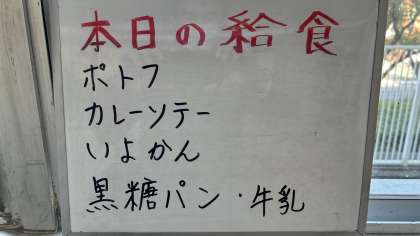 本日の給食
ポトフ
カレーソテー
いよかん
黒糖パン・牛乳